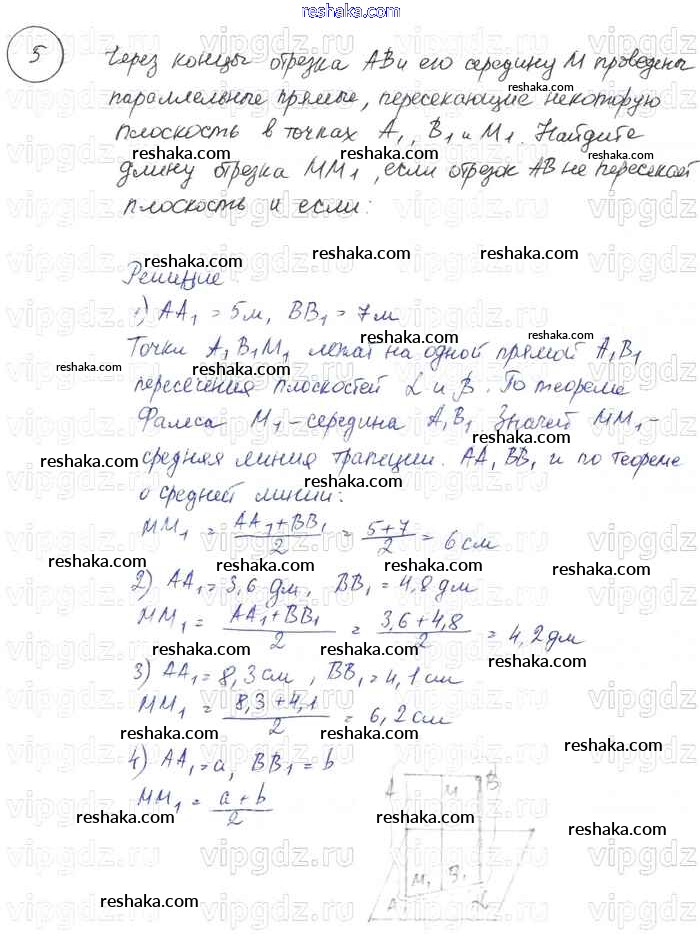 reshaka.com
5
Через концы отрезка АВ и его середину М проведены
параллельные прямые, пересекающие некоторую
плоскость в точках A₁, B₁ и M₁. Найдите
длину отрезка MM₁, если отрезок АВ не пересекает
плоскость и если:
Решение
1) AA₁ = 5м, BB₁ = 7м
Точки A₁B₁M₁ лежат на одной прямой A₁B₁
пересечения плоскостей α и β. По теореме
Фалеса M₁ - середина A₁B₁ Значит MM₁ -
средняя линия трапеции. AA₁BB₁ и по теореме
о средней линии:
MM₁ = (AA₁+BB₁)/2 = (5+7)/2 = 6 см
2) AA₁ = 3,6 дм, BB₁ = 4,8 дм
MM₁ = (AA₁+BB₁)/2 = (3,6+4,8)/2 = 4,2 дм
3) AA₁ = 8,3 см, BB₁ = 4,1 см
MM₁ = (8,3+4,1)/2 = 6,2 см
4) AA₁ = a, BB₁ = b
MM₁ = (a+b)/2
A M B
M₁ B₁
A₁ α
vipgdz.ru
reshaka.com